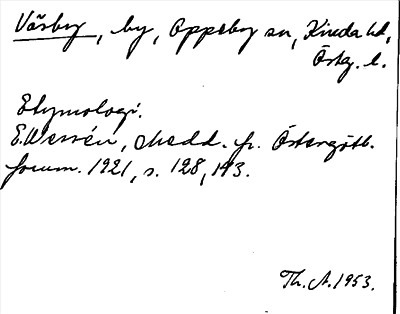 Våsby, by, Oppeby sn, Kinda hd,
Östg. l.
Etymologi.
E. Wessén, Medd. fr. Östergötl.
fornm. 1921, s. 128, 143.
Th. A. 1953.